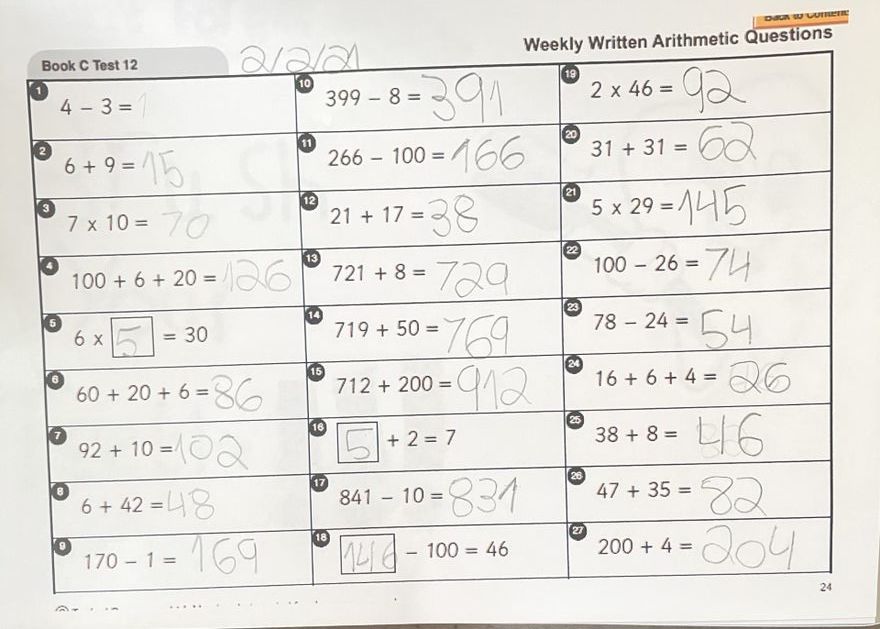 Back to Contents
Weekly Written Arithmetic Questions
Book C Test 12 2/2/21
1 4 – 3 = 1
2 6 + 9 = 15
3 7 x 10 = 70
4 100 + 6 + 20 = 126
5 6 x 5 = 30
6 60 + 20 + 6 = 86
7 92 + 10 = 102
8 6 + 42 = 48
9 170 – 1 = 169
10 399 – 8 = 391
11 266 – 100 = 166
12 21 + 17 = 38
13 721 + 8 = 729
14 719 + 50 = 769
15 712 + 200 = 912
16 5 + 2 = 7
17 841 – 10 = 831
18 146 – 100 = 46
19 2 x 46 = 92
20 31 + 31 = 62
21 5 x 29 = 145
22 100 – 26 = 74
23 78 – 24 = 54
24 16 + 6 + 4 = 26
25 38 + 8 = 46
26 47 + 35 = 82
27 200 + 4 = 204
24